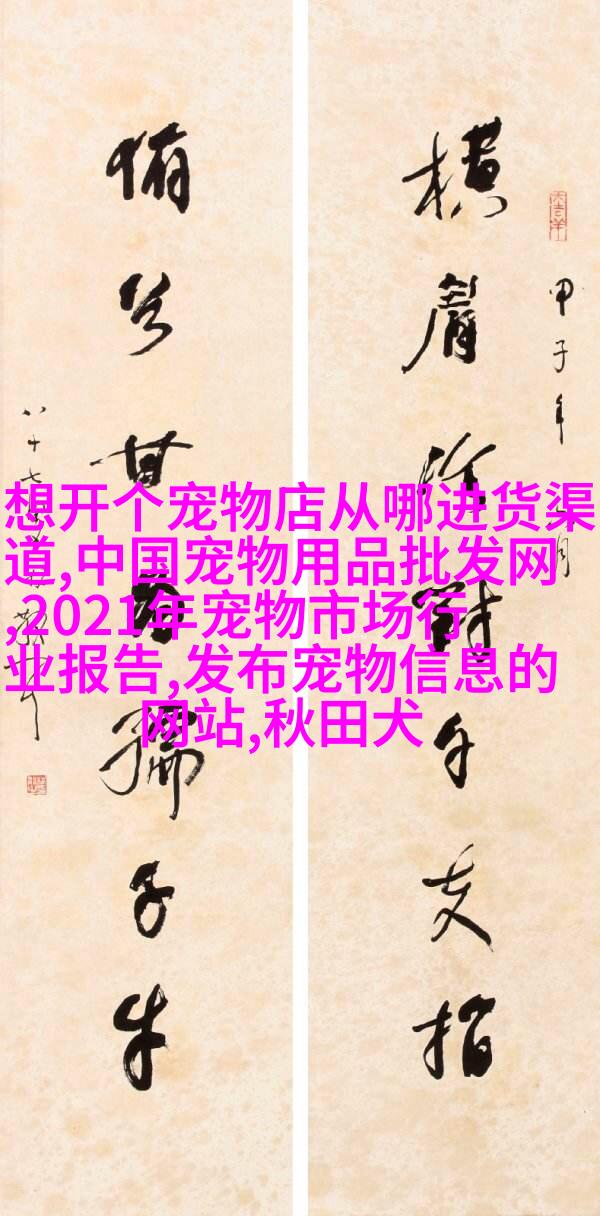 甲子年
横眉冷對千夫指
俯首甘為孺子牛
八十七
想开个宠物店从哪进货渠
道,中国宠物用品批发网
,2021年宠物市场行
业报告,发布宠物信息的
网站,秋田犬